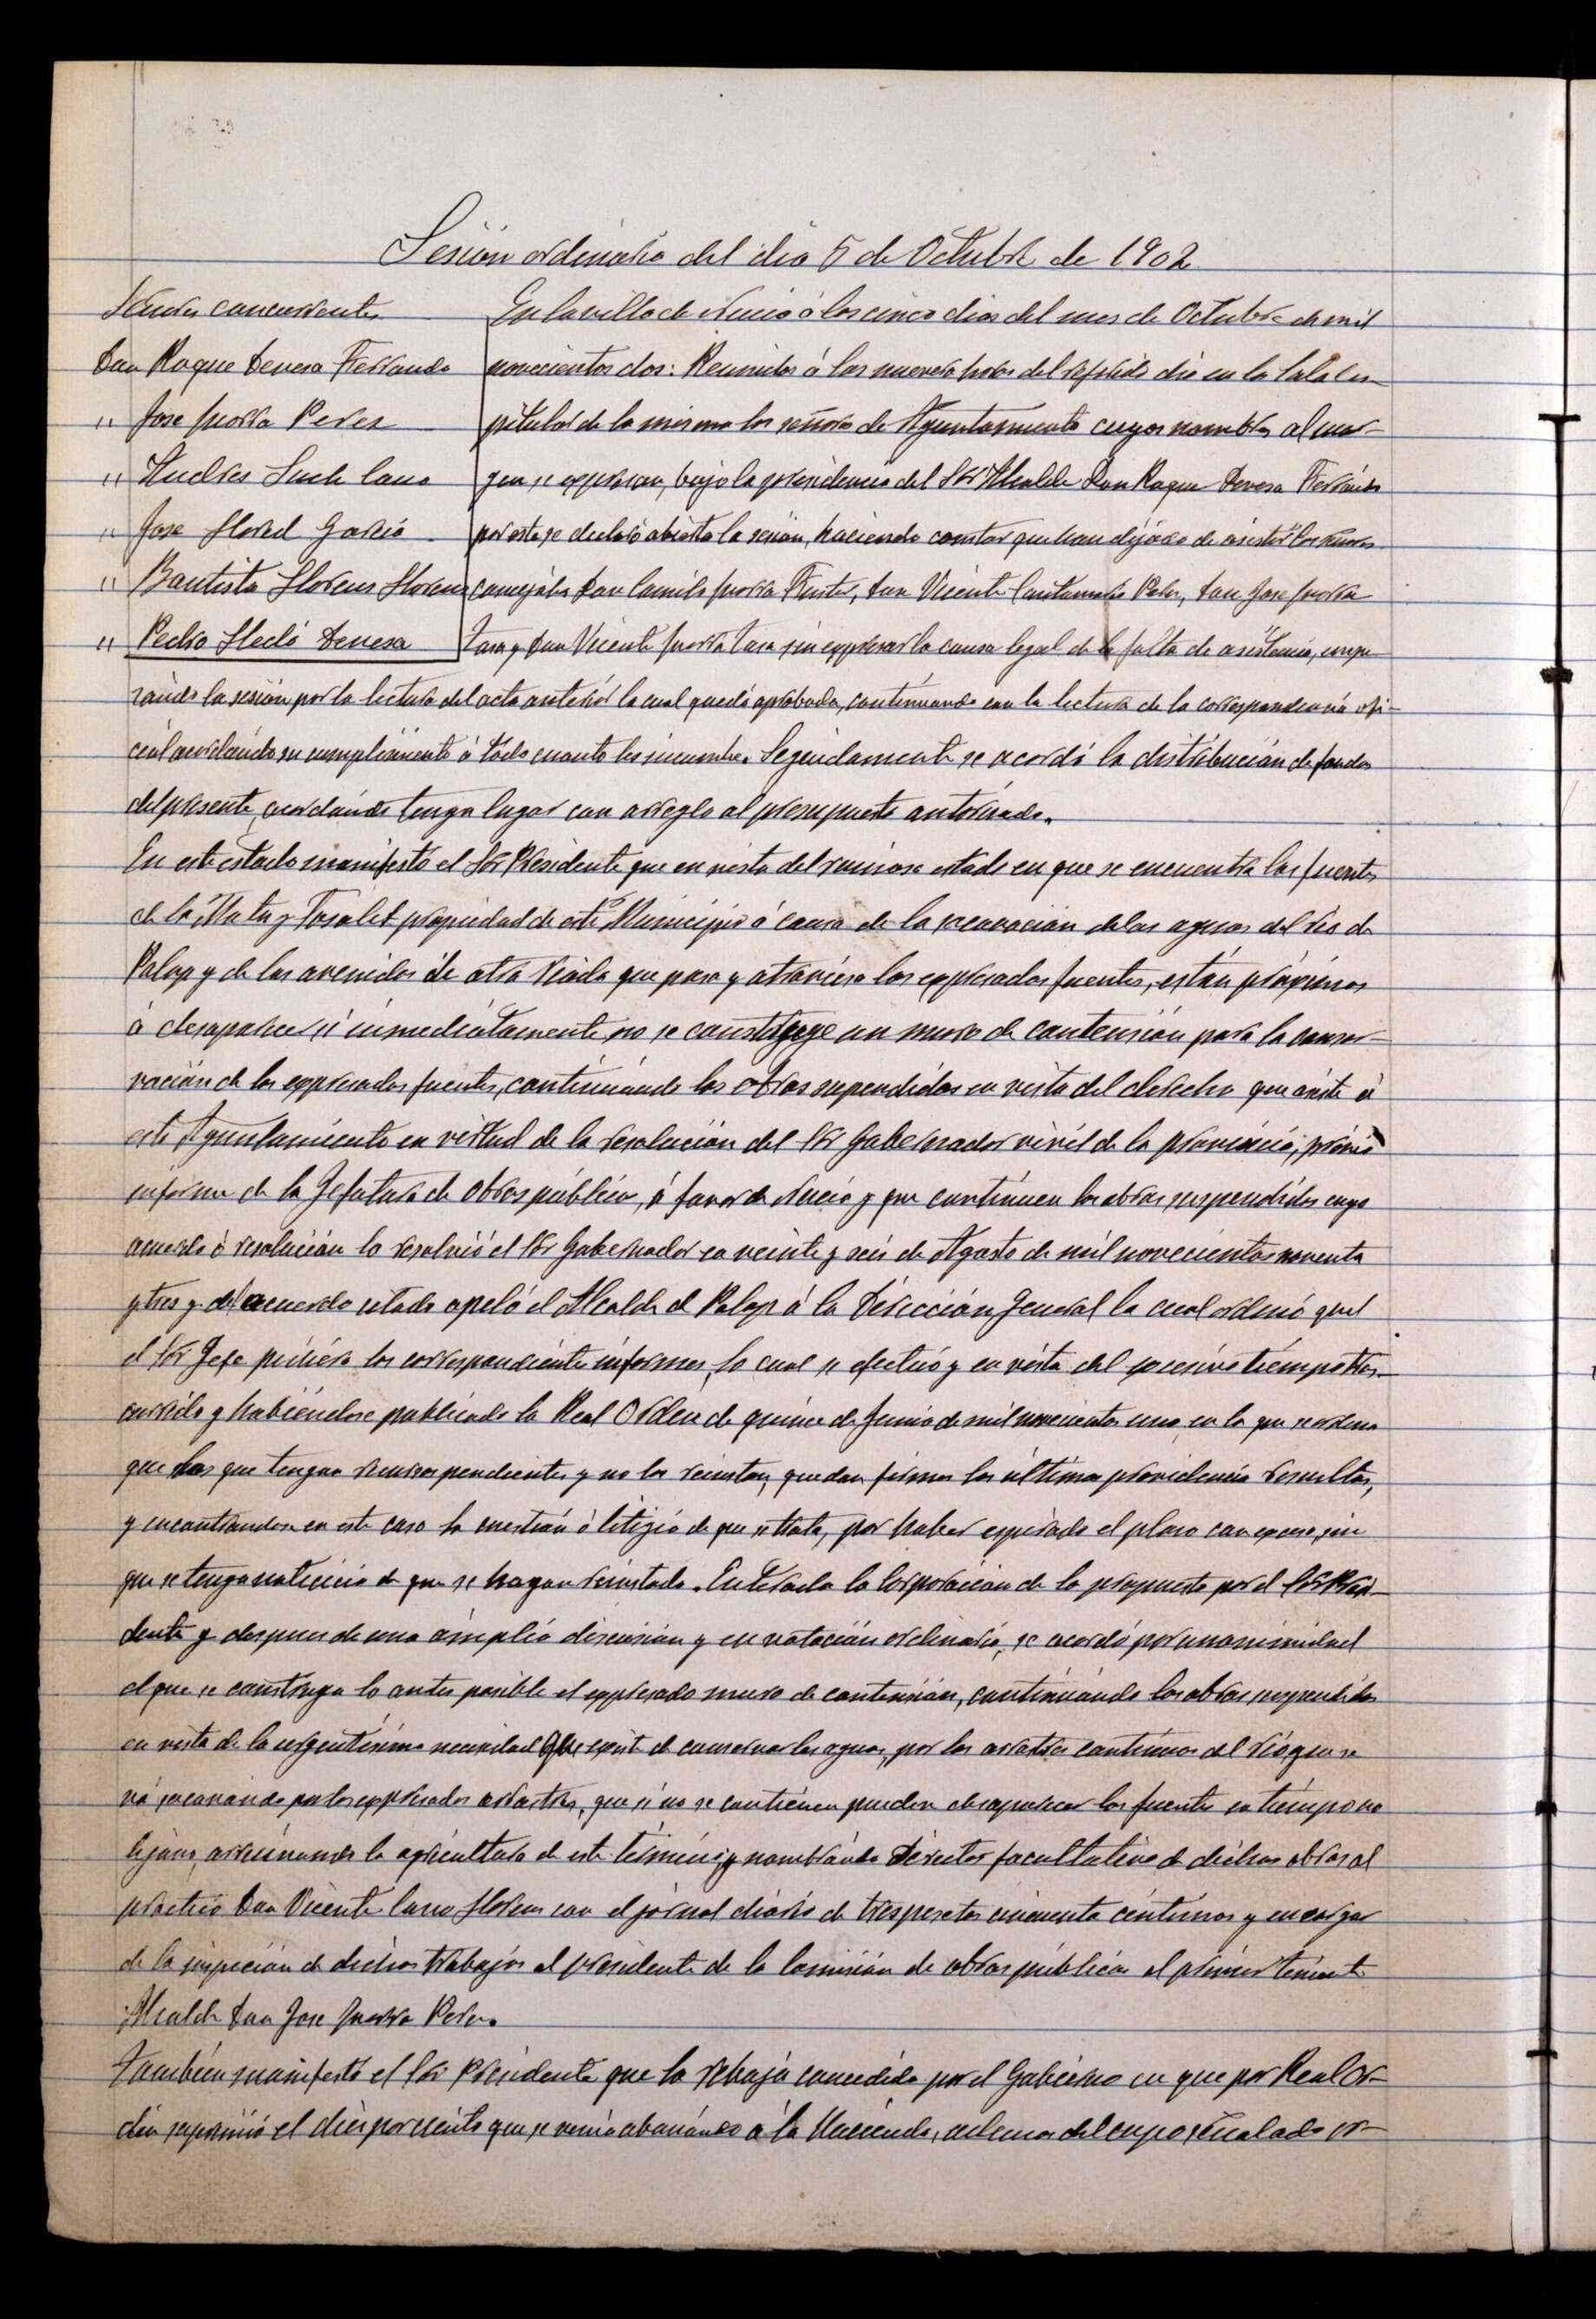 Sesión ordinaria del día 5 de Octubre de 1902
Señores concurrentes
Don Roque Devesa Ferrando
" Jose Ivorra Perez
" Andres Such Cano
" Jose Llored García
" Bautista Llorens Llorens
" Pedro Lledó Devesa
En la villa de Nucia á los cinco dias del mes de Octubre de mil
novecientos dos: Reunidos á las nueve horas del referido dia en la Sala Ca-
pitular de la misma los señores de Ayuntamiento cuyos nombres al mar-
gen se expresan, bajo la presidencia del Sor Alcalde Don Roque Devesa Ferrándo
por este se declaró abierta la sesión, haciendo constar que han dejado de asistir los señores
concejales Don Camilo Ivorra Fuster, Don Vicente Perez, Don Jose Ivorra
y Don Vicente Ivorra sin expresar la causa legal de la falta de asistencia, empe-
zando la sesión por la lectura del acta anterior la cual quedó aprobada, continuando con la lectura de la correspondencia ofi-
cial acordando su cumplimiento á todo cuanto les incumbe. Seguidamente se acordó la distribución de fondos
del presente, acordándo tenga lugar con arreglo al presupuesto autorizado.
En este estado manifestó el Sor Presidente que en vista del ruinoso estado en que se encuentra las fuentes
de la Mata y Tosalet propiedad de este Municipio á causa de la socavación de las aguas del rio de
Polop y de las avenidas de otra riada que pasa y atraviesa las expresadas fuentes, están próximas
á desaparecer si inmediatamente no se construyye un muro de contensión para la conser-
vación de las expresadas fuentes, continuándo las obras suspendidas en vista del derecho que asiste á
este Ayuntamiento en virtud de la resolución del Sor Gobernador civil de la provincia, previo
informe de la Jefatura de obras públicas, á favor de Nucia y que continuen las obras suspendidas cuyo
acuerdo ó resolución lo resolvió el Sor Gobernador en veinte y seis de Agosto de mil novecientos noventa
y tres y del acuerdo citado apeló el Alcalde de Polop á la Dirección General la cual ordenó que
el Sor Jefe pidiera los correspondientes informes, lo cual se efectuó y en vista del excesivo tiempo tras-
currido y habiéndose publicado la Real Orden de quince de Junio de mil novecientos uno, en la que se ordena
que los que tengan recursos pendientes y no los reinstan, quedan firmes las últimas providencias resueltas,
y encontrandose en este caso la cuestión ó litigio de que se trata, por haber expirado el plazo con exceso, sin
que se tenga noticia de que se hayan reinstado. Enterada la Corporación de lo propuesto por el Sor Presi-
dente y despues de una ámplia discusión y en votación ordinaria, se acordó por unanimidad
el que se construya lo antes posible el expresado muro de contensión, continuándo las obras suspendidas
en vista de la urgentísima necesidad que existe de conservar las aguas, por los arrastres continuos del rio, que se
vá socavando por los expresados arrastres, que si no se contienen pueden desaparecer las fuentes en tiempo no
lejano, arruinando la agricultura de este término, y nombrándo Director facultativo de dichas obras al
práctico Don Vicente Cano Llorens con el jornal diario de tres pesetas cincuenta céntimos y encargar
de la inspeción de dichos trabajos al presidente de la Comisión de obras públicas el primer teniente
Alcalde Don Jose Ivorra Perez.
También manifestó el Sor Presidente que la rebaja concedida por el Gobierno en que por Real Or-
den suprimió el diez por ciento que se venia abonándo á la Hacienda, ademas del cupo señalado or-